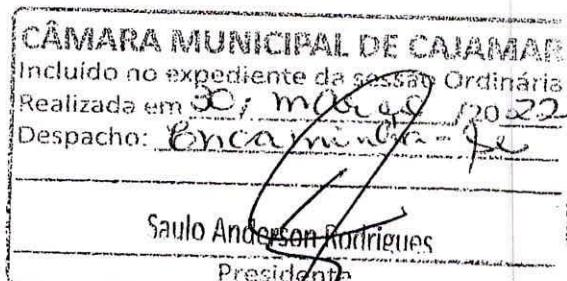 CÂMARA MUNICIPAL DE CAJAMAR
Incluído no expediente da sessão Ordinária
Realizada em 30, março /2022
Despacho: Encaminha-se
Saulo Anderson Rodrigues
Presidente